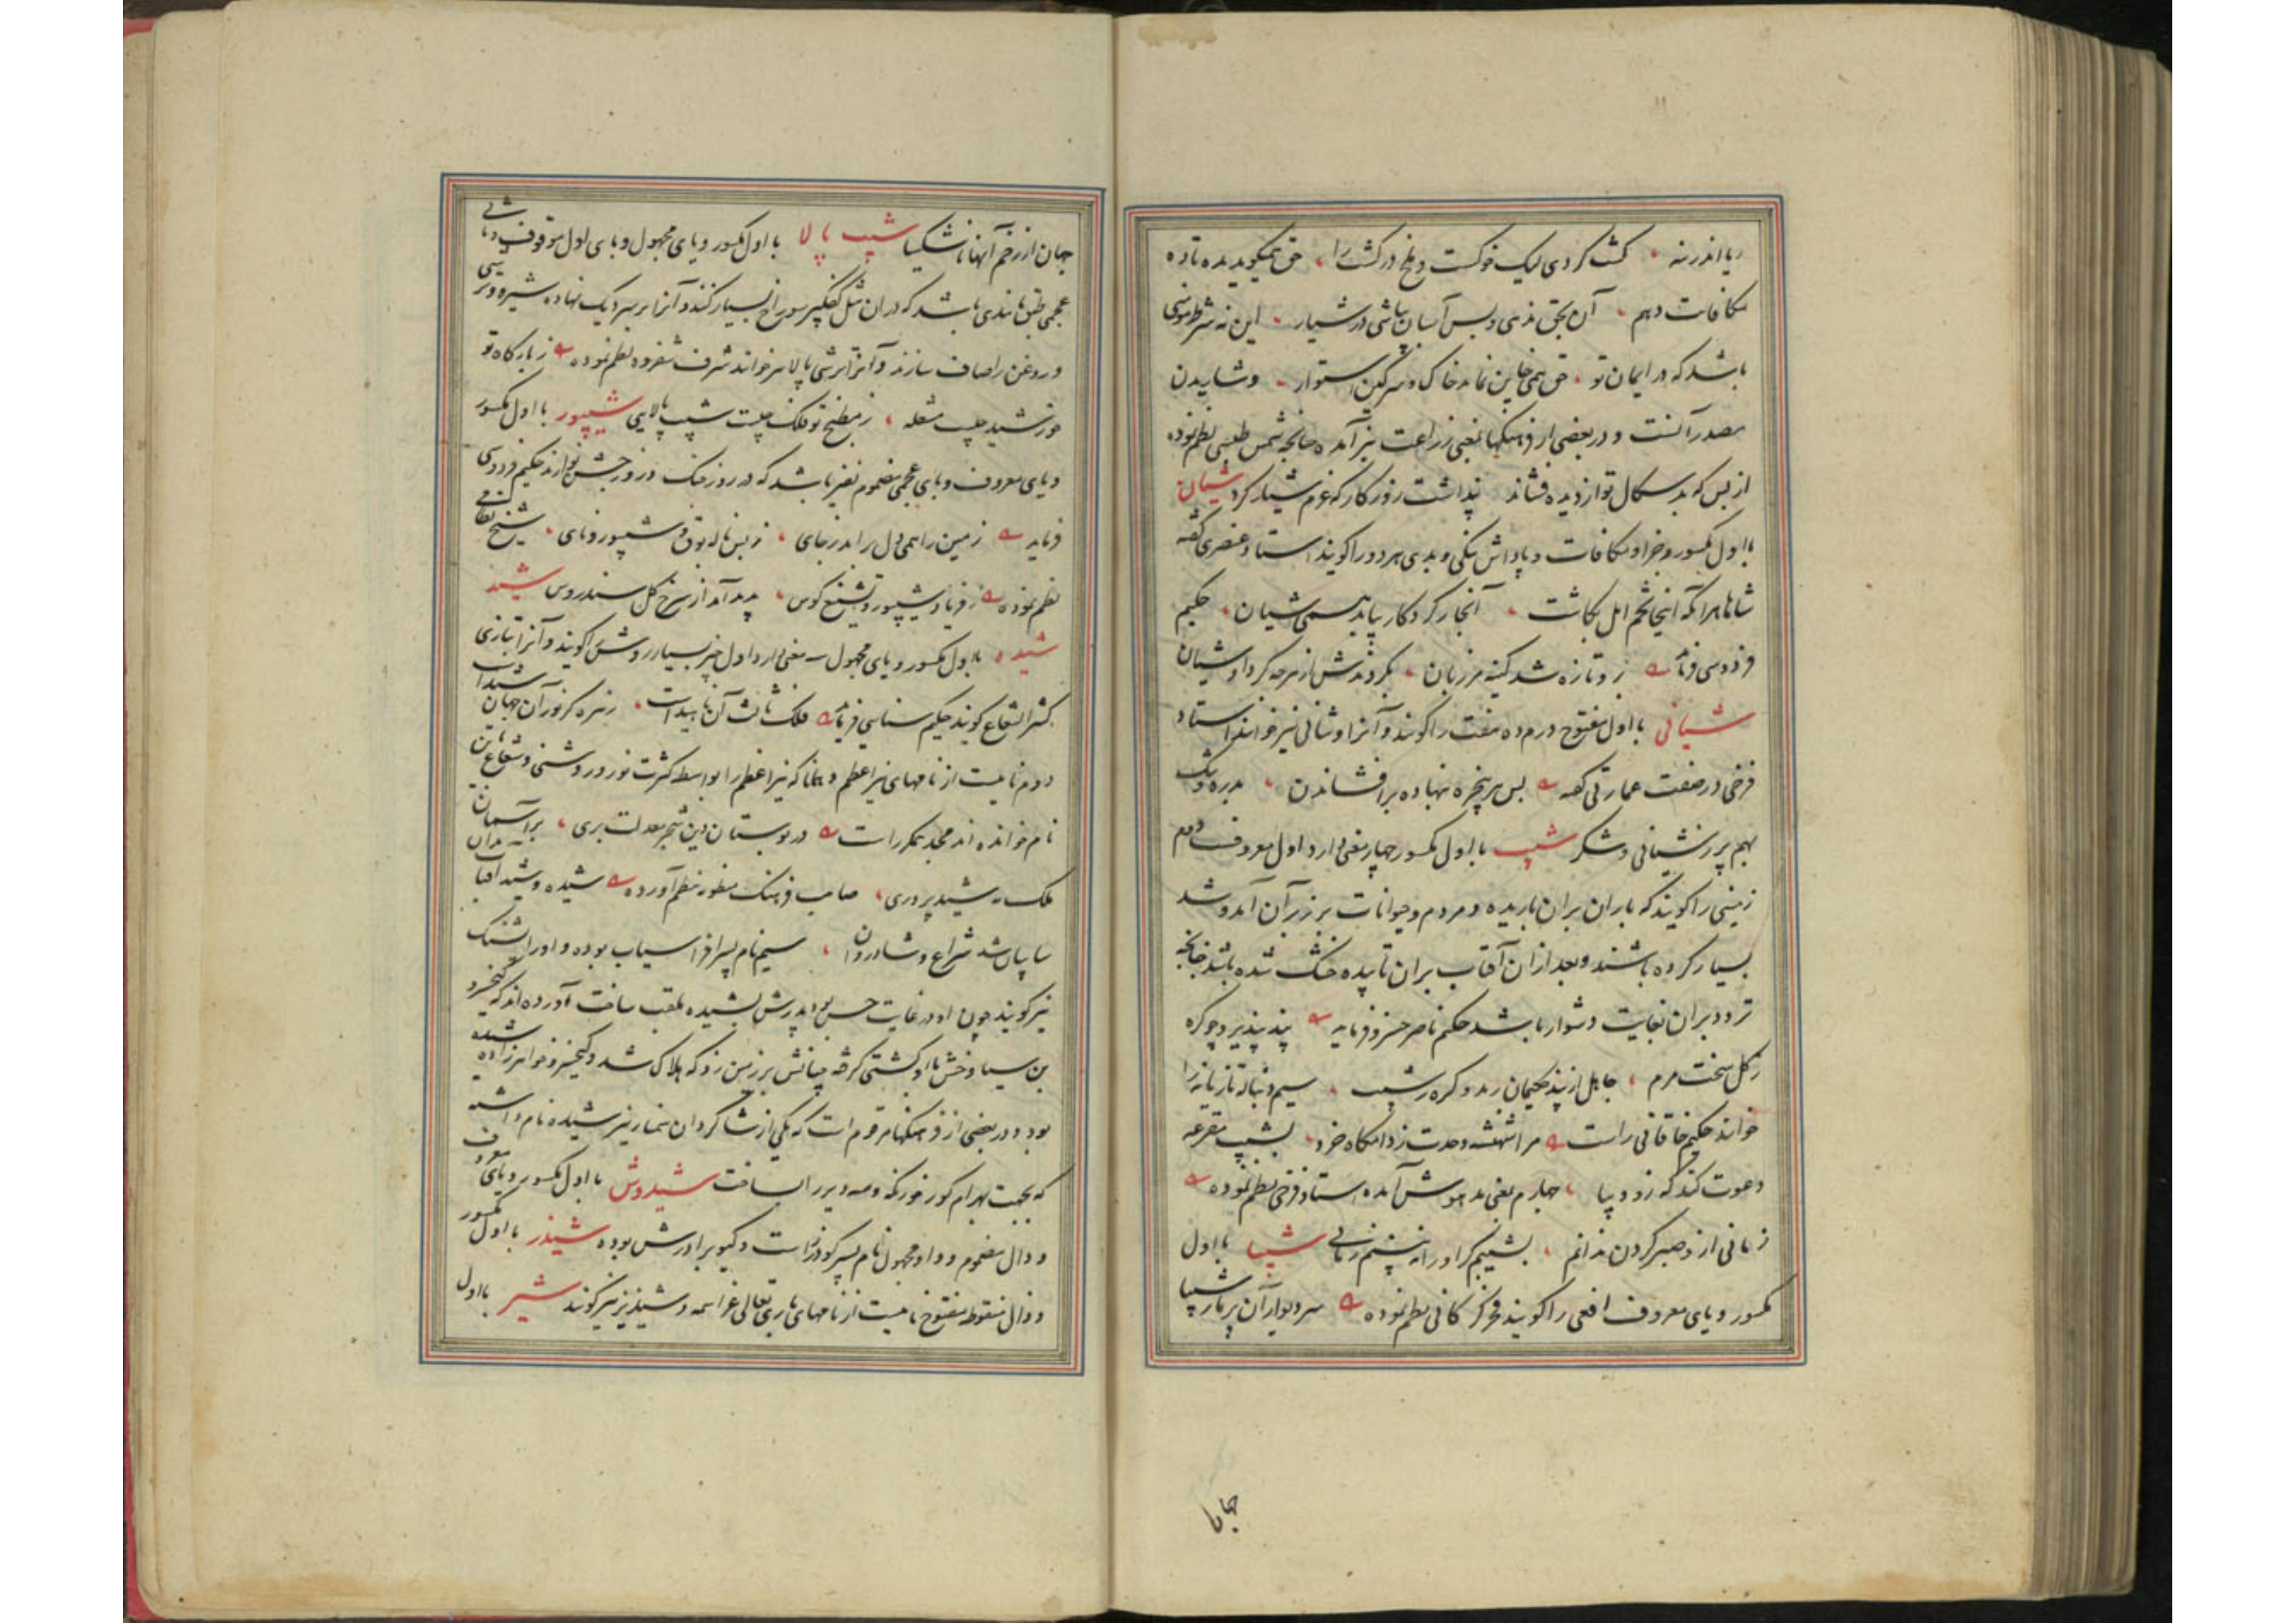 کشت کردی لیک خوکست و ملخ در کشت را حق همیکوید بده تا ده
مکافات دهم آن بحق ندهی و بس آسان بپاشی در شیار این نه شرط مومنی
باشد که در ایمان تو حق همی خاین نماید خاک و سرکین استوار و شاییدن
مصدر آنست و در بعضی از فرهنکها بمعنی زراعت نیز آمده چنانچه شمس طبسی نظم نموده
از بس که بدسکال تو از دیده فشاند پنداشت روزکار که عزم شیار کرد شیان
با اول مکسور جزا و مکافات و پاداش نیکی و بدی هر دو را کویند استاد عنصری کفته
شاها هر آنکه اینجا تخم امل بکاشت آنجا ز کردکار بیابد همی شیان حکیم
فردوسی فرماید زو تازه شد کینه مرزبان بکردندش از هرچه کرد او شیان
شیانی با اول مفتوح درم ده هفت را کویند و آنرا وشانی نیز خوانند استاد
فرخی در صفت عمارتی کفته بس هر پنجره نهاده برافشاندن بدره و تنک
بهم پر ز شیانی و شکر شیب با اول مکسور چهار معنی دارد اول معروف دوم
زمینی را کویند که باران بران باریده و مردم و حیوانات بر زبر آن آمد و شد
بسیار کرده باشند و بعد از ان آفتاب بران تابیده خشک شده باشد چنانچه
تردد بران بغایت دشوار باشد حکیم ناصر خسرو فرماید پند بپذیر و چو کره
ز کل سخت مرم جاهل از پند حکیمان رمد و کره ز شیب سیم دنباله تازیانه را
خوانند حکیم خاقانی راست مرا شهنشه وحدت ز دامکاه خرد بشیب مقرعه
دعوت کند که زود بیا چهارم بمعنی مدهوش آمده استاد فرخی نظم نموده
زمانی از و صبر کردن ندانم بشیبم کر او را نه بینم زمانی شیبا با اول
مکسور و یای معروف افعی را کویند فخر کرکانی نظم نموده سر دیوار آن پر مار شیبا
جهان
جهان از زخم آنها ناشکیبا شیب پالا با اول مکسور و یای مجهول و بای اول موقوف و بای ثانی
عجمی طبق مانندی باشد که در ان مثل کفکیر سوراخ بسیار کنند و آنرا بر سر دیک نهاده شیره و ترشی
و روغن را صاف سازند و آنرا ترشی پالا نیز خوانند شرف شفروه نظم نموده ز بارکاه تو
خورشید چیست مشعله ز مطبخ تو فلک چیست شیب پالایی شیپور با اول مکسور
و یای معروف و بای عجمی مضموم نفیر باشد که در روز جنک و روز جشن نوازند حکیم فردوسی
فرماید زمین را همی دل برآمد ز جای ز بس ناله بوق و شیپور و نای شیخ نظامی
نظم نموده ز فریاد شیپور و تشنیع کوس پدید آمد از سرخ کل سندروس شید
شیده با اول مکسور و یای مجهول سه معنی دارد اول چیز بسیار روشن را کویند و آنرا بتازی
کثیر الشعاع کویند حکیم سنایی فرماید فلک ثالث آن ناهید است زهره کز نور آن جهان شیدا است
دوم نامیست از نامهای نیر اعظم و همانا که نیر اعظم را بواسطه کثرت نور و روشنی و شعاع باین
نام خوانده اند مجد همکر راست در بوستان دین شجر معدلت بری بر آسمان
ملک مه شید پروری صاحب فرهنک منظومه بنظم آورده شیده و شید آفتاب بدان
سایبان شد شراع و شادروان سیم نام پسر افراسیاب بوده و او را پشنک
نیز کویند چون او در غایت حسن بود پدرش بشیده ملقب ساخت آورده اند که کیخسرو
بن سیاوخش با او کشتی کرفته چنانش بر زمین زد که هلاک شد و کیخسرو خواهرزاده شیده
بود و در بعضی از فرهنکها مرقوم است که یکی از شاکردان سنمار نیز شیده نام داشته
که بجهت بهرام کور خورنکه و سه دیر را ساخت شیدوش با اول مکسور و یای معروف
و دال مضموم و واو مجهول نام پسر کودرز است و کیو برادرش بوده شیذر با اول مکسور
و ذال منقوطه مفتوح نامیست از نامهای باری تعالی عز اسمه و شیذیر نیز کویند شیر با اول